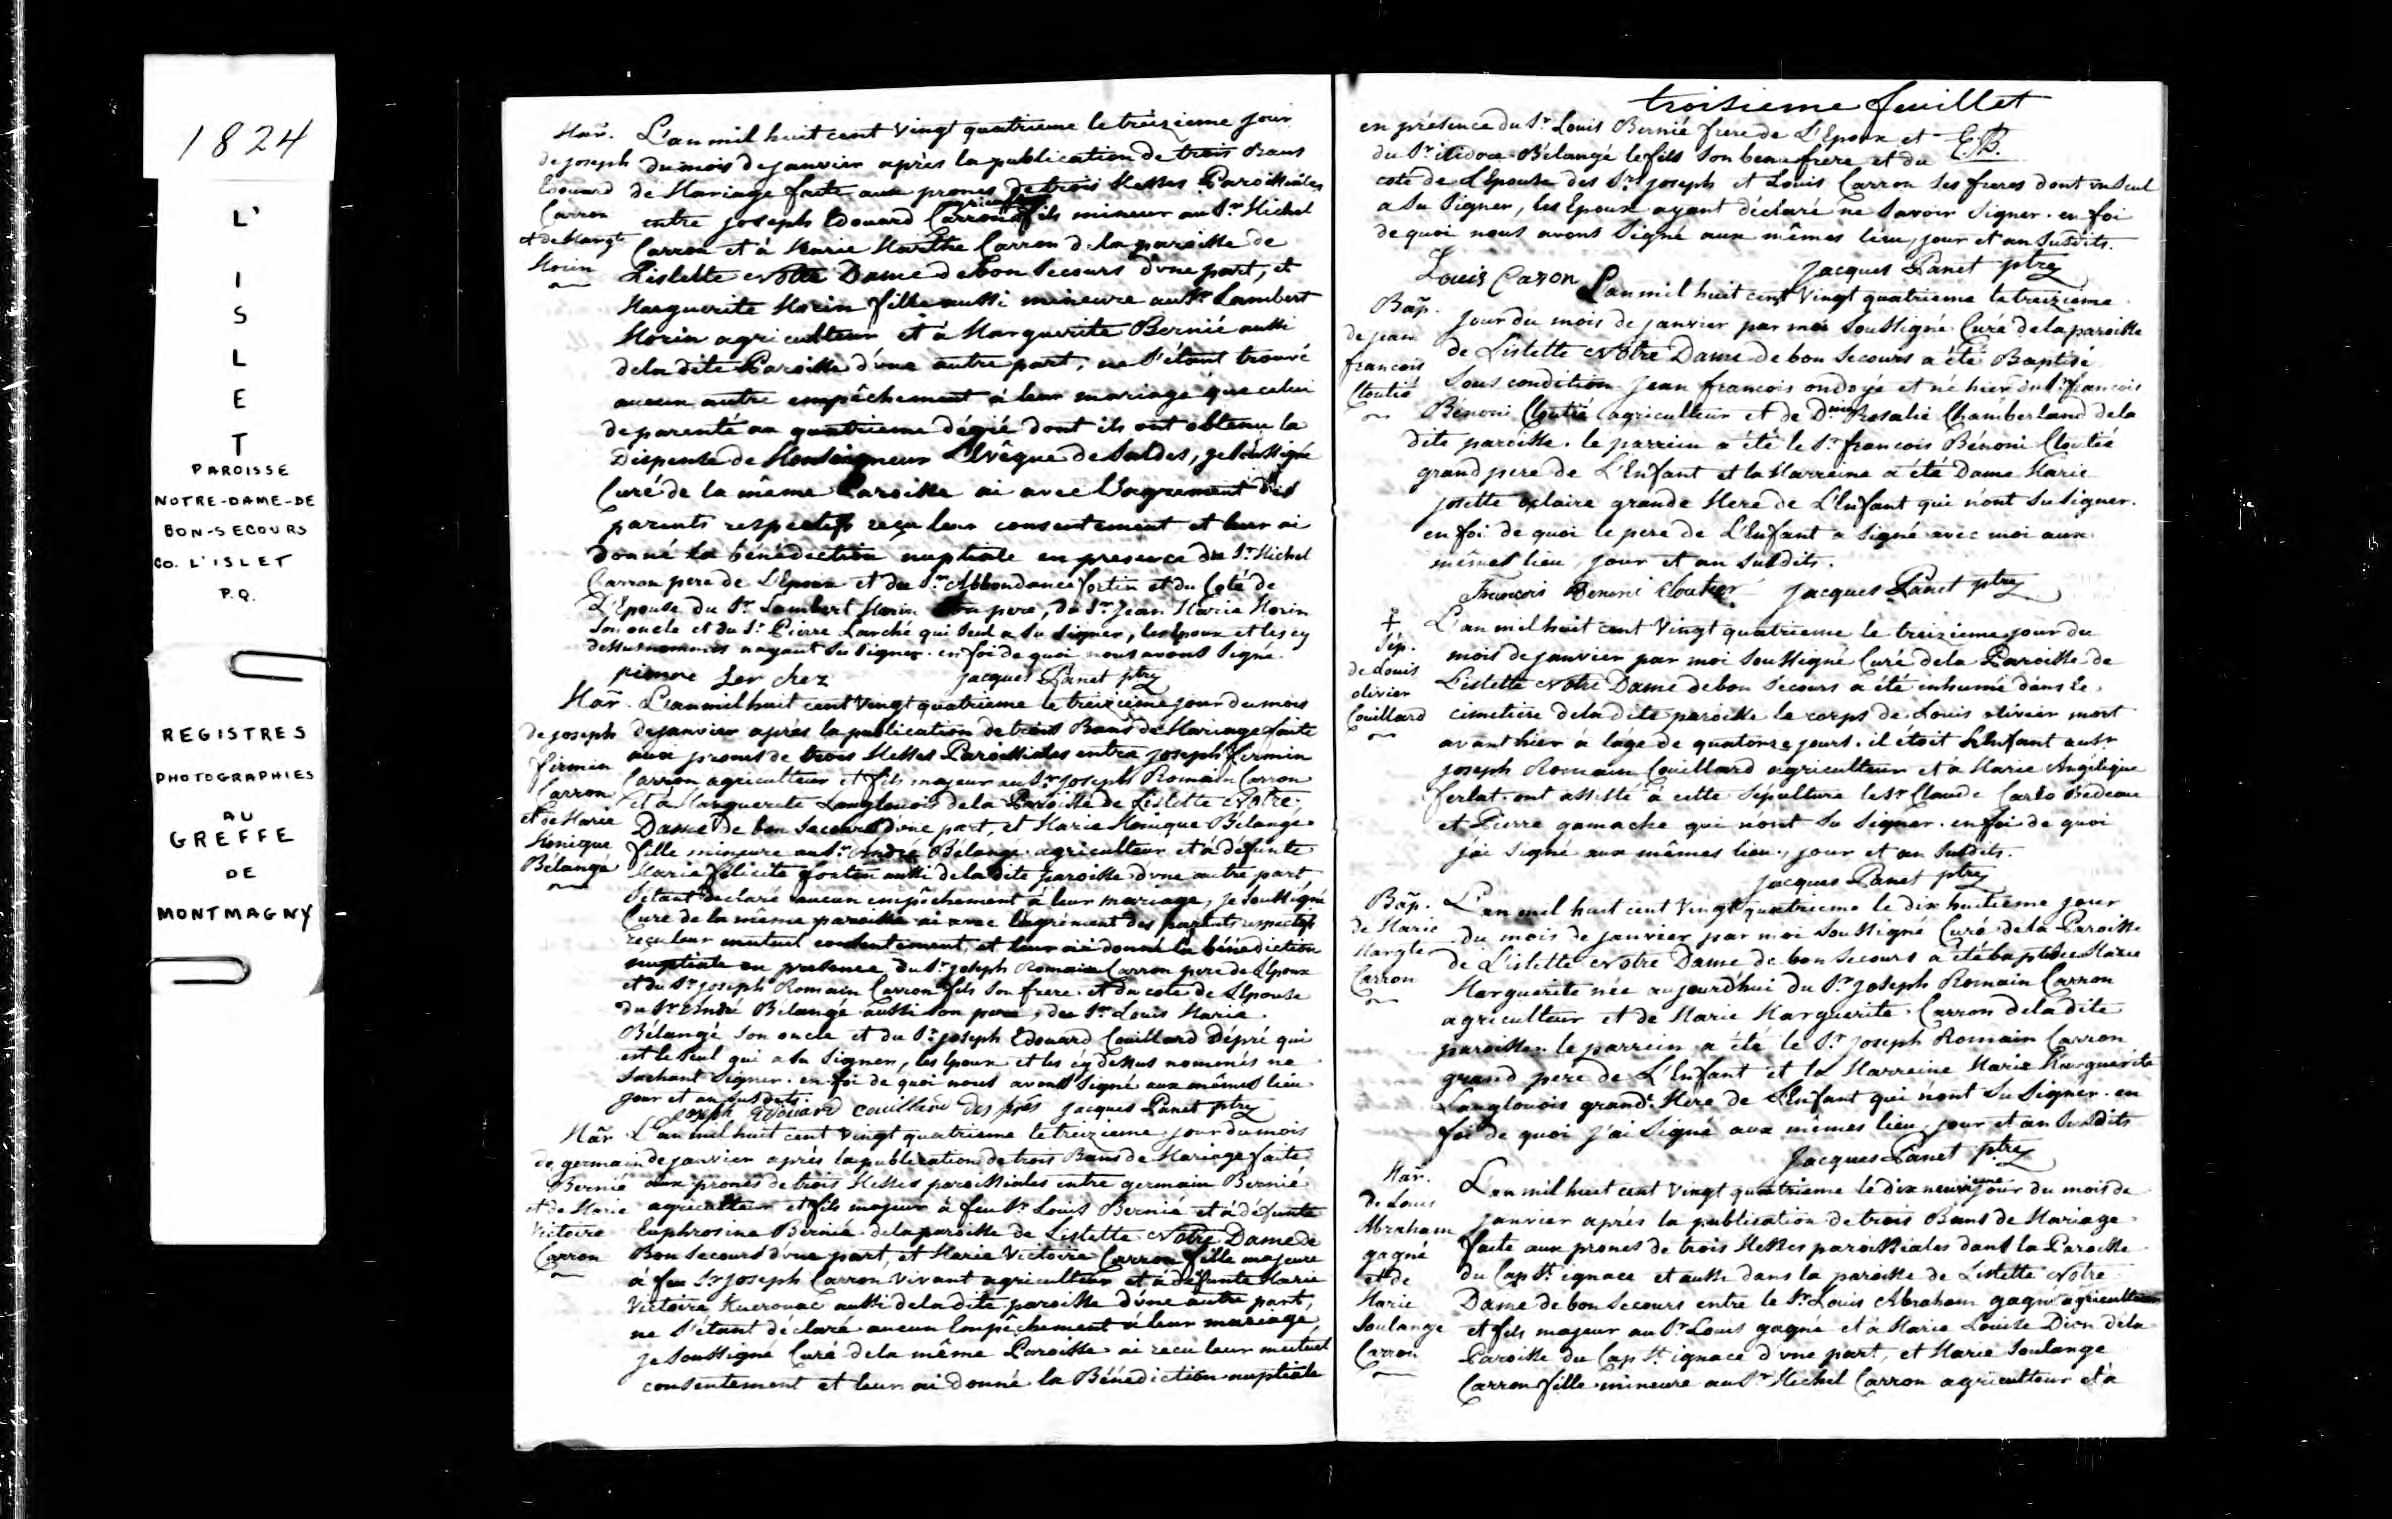 1824
L'
I
S
L
E
T
PAROISSE
NOTRE-DAME-DE
BON-SECOURS
CO. L'ISLET
P.Q.
REGISTRES
PHOTOGRAPHIES
AU
GREFFE
DE
MONTMAGNY
Mar. L'an mil huit cent vingt quatrieme le treizieme jour
de joseph du mois de janvier après la publication de trois Bans
Edouard de Mariage faite aux prones de trois Messes Paroissiales
agriculteur
Carron entre joseph Edouard Carron fils mineur au Sr. Michel
et de Margte Carron et à Marie Marthe Carron de la paroisse de
Morin Lislette Notre Dame de bon Secours d'une part, et
Marguerite Morin fille aussi mineure au Sr. Lambert
Morin agriculteur et à Marguerite Bernié aussi
de la dite Paroisse d'une autre part, ne s'étant trouvé
aucun autre empêchement à leur mariage que celui
de parenté au quatrieme dégré dont ils ont obtenu la
Dispense de Monseigneur L'Evêque de Saldes, je soussigné
Curé de la même Paroisse ai avec l'agrement des
parents respectifs reçu leur consentement et leur ai
donné la bénédiction nuptiale en presence du Sr. Michel
Carron pere de L'Epoux et du Sr. Abbondance fortin et du Coté de
L'Epouse du Sr. Lambert Morin son pere, du Sr. Jean Marie Morin
son oncle et du Sr. Pierre Larché qui seul a su signer, les Epoux et les cy
dessus nommés nayant su signer. en foi de quoi nous avons signé.
pierre Ler chez jacques Panet ptre
Mar. L'an mil huit cent vingt quatrieme le treizieme jour du mois
de joseph de janvier après la publication de trois Bans de Mariage faite
firmin aux prones de trois Messes Paroissiales entre joseph firmin
Carron Carron agriculteur et fils majeur au Sr. joseph Romain Carron
et à Marguerite Langlouois de la Paroisse de Lislette Notre
et de Marie Dame de bon Secours d'une part, et Marie Monique Bélangé
Monique fille mineure au Sr. André Bélangé agriculteur et à defunte
Bélangé Marie félicité fortin aussi de la dite paroisse d'une autre part
s'étant declaré aucun empêchement à leur mariage, je soussigné
Curé de la même paroisse ai avec l'agrément des parents respectifs
reçu leur mutuel consentement et leur ai donné la bénédiction
nuptiale en presence du Sr. joseph Romain Carron pere de L'Epoux
et du Sr. joseph Romain Carron fils son frere et du coté de L'Epouse
du Sr. André Bélangé aussi son pere, du Sr. Louis Marie
Bélangé son oncle et du Sr. joseph Edouard Couillard Dépré qui
est le seul qui a su signer, les Epoux et les cy dessus nommés ne
sachant signer. en foi de quoi nous avons signé aux mêmes lieu
jour et an susdits.
joseph Edouard couillard des prés jacques Panet ptre
Mar. L'an mil huit cent vingt quatrieme le treizieme jour du mois
de germain de janvier après la publication de trois Bans de Mariage faite
Bernié aux prones de trois Messes paroissiales entre germain Bernié
et de Marie agriculteur et fils majeur à feu Sr. Louis Bernié et à défunte
Victoire Euphrosine Bernié de la paroisse de Lislette Notre Dame de
Carron Bon Secours d'une part, et Marie Victoire Carron fille majeure
à feu Sr joseph Carron vivant agriculteur et à défunte Marie
Victoire Kuerouac aussi de la dite paroisse d'une autre part,
ne s'étant déclaré aucun Empêchement à leur mariage,
je soussigné Curé de la même Paroisse ai recu leur mutuel
consentement et leur ai donné la Bénédiction nuptiale
troisieme feuillet
en présence du Sr. Louis Bernié frere de L'Epoux et
du Sr. isidore Bélangé le fils son beau frere et du
coté de L'Epouse des Srs. joseph et Louis Carron ses freres dont un seul
a su signer, les Epoux ayant déclaré ne savoir signer. en foi
de quoi nous avons signé aux mêmes lieu, jour et an susdits.
Louis Caron jacques Panet ptre
Bap. L'an mil huit cent vingt quatrieme le treizieme
de jean jour du mois de janvier par moi soussigné Curé de la paroisse
francois de Lislette Nôtre Dame de bon secours a été Baptisé
Cloutié sous condition Jean francois ondoyé et né hier du Sr. francois
Bénoni Cloutié agriculteur et de Dme Rosalie Chamberland de la
dite paroisse. le parrein a été le Sr. francois Bénoni Cloutié
grand pere de L'Enfant et la Marreine a été Dame Marie
josette Oxlaire grande Mere de L'Enfant qui n'ont su signer.
en foi de quoi le pere de L'Enfant a signé avec moi aux
mêmes lieu, jour et an susdits.
François Benoni Cloutier jacques Panet ptre
L'an mil huit cent vingt quatrieme le treizieme jour du
Sép. mois de janvier par moi soussigné Curé de la Paroisse de
de Louis Lislette Notre Dame de bon secours a été inhumé dans le
olivier
Couillard cimetiere de la dite paroisse le corps de Louis olivier mort
avant hier à l'âge de quatorze jours. il étoit L'Enfant au Sr.
joseph Romain Couillard agriculteur et à Marie Angélique
ferlat. ont assisté à cette sépulture le Sr. Claude Carlo Bedeau
et Pierre gamache qui n'ont su signer. en foi de quoi
j'ai signé aux mêmes lieu, jour et an susdits.
jacques Panet ptre
Bap. L'an mil huit cent vingt quatrieme le dix huitième jour
de Marie du mois de janvier par moi soussigné Curé de la Paroisse
Margte de L'islette Notre Dame de bon secours a été baptisée Marie
Carron Marguerite née aujourd'hui du Sr. joseph Romain Carron
agriculteur et de Marie Marguerite Carron de la dite
paroisse. le parrein a été le Sr. joseph Romain Carron
grand pere de L'Enfant et la Marreine Marie Marguerite
Langlouois grand. Mere de L'Enfant qui n'ont su signer. en
foi de quoi j'ai signé aux mêmes lieu, jour et an susdits
jacques Panet ptre
Mar. L'an mil huit cent vingt quatrieme le dix neuvieme jour du mois de
de Louis janvier après la publication de trois Bans de Mariage
Abraham faite aux prones de trois Messes paroissiales dans la Paroisse
gagné
et de du Cap St. ignace et aussi dans la paroisse de Lislette Notre
Marie Dame de bon Secours entre le Sr. Louis Abraham gagné agriculteur
Soulange et fils majeur au Sr. Louis gagné et à Marie Louise Dion de la
Carron Paroisse du Cap St. ignace d'une part, et Marie Soulange
Carron fille mineure au Sr. Michel Carron agriculteur et à